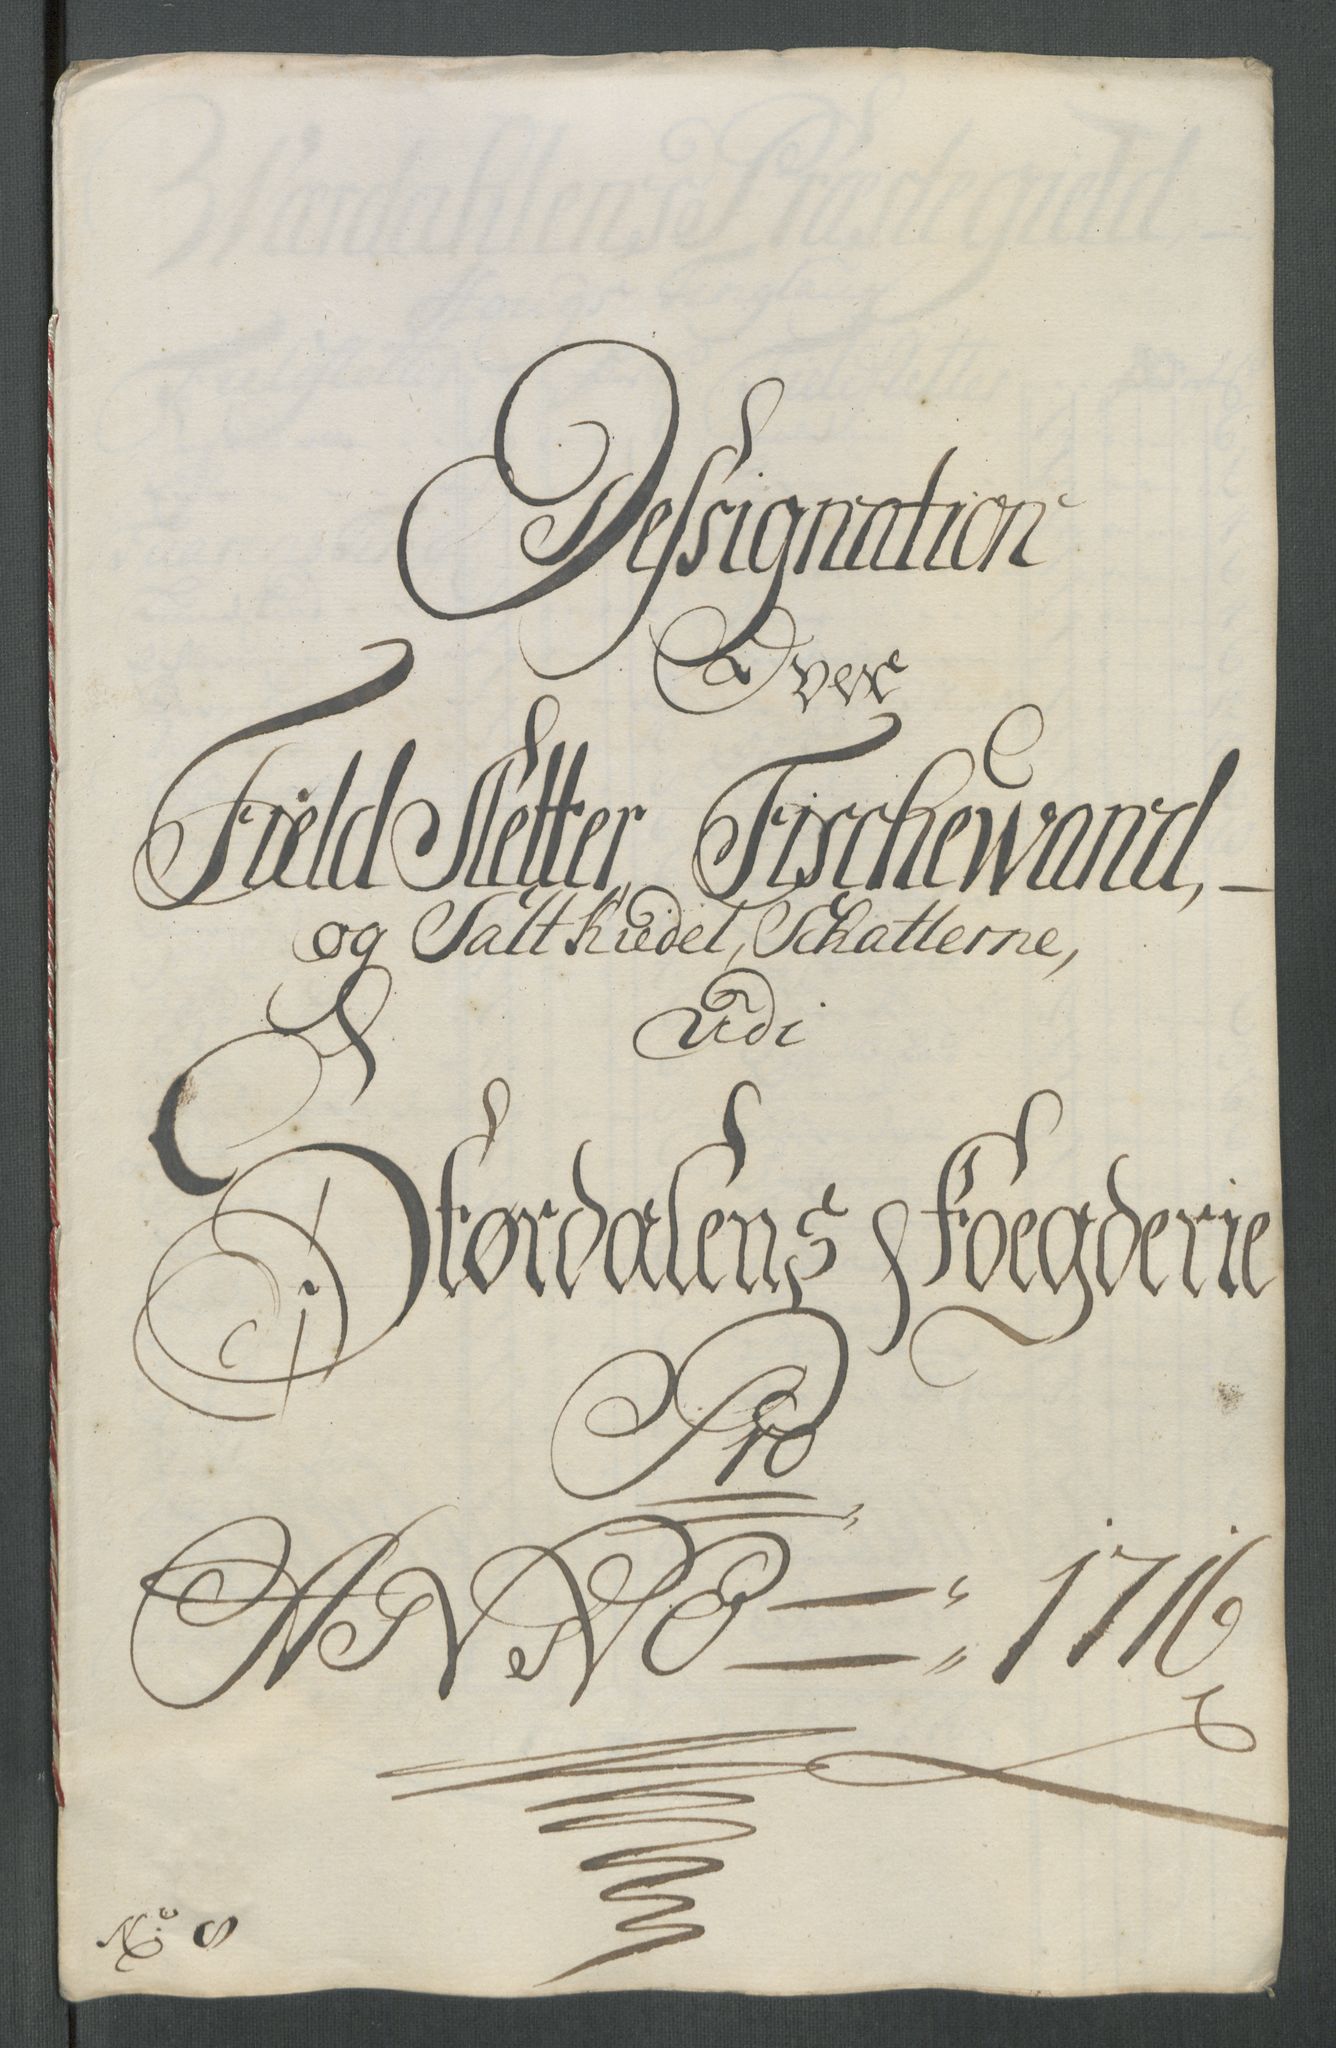 Dessignation
Over
Field Sletter, Fischewand,
og Salt Kiedel, Schatterne,
Udi
Størdalens Foegderie
Pro
ANNO 1716
No 8